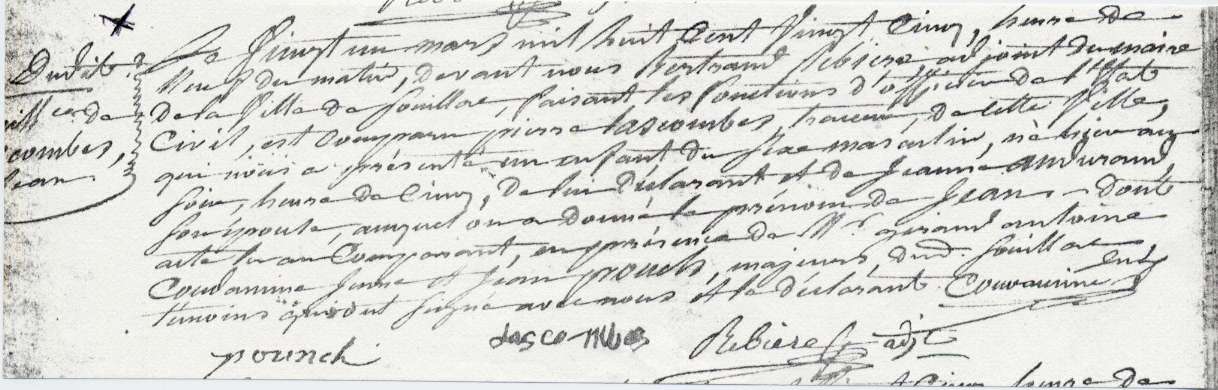 Le Vingt un mars mil huit Cent Vingt Cinq, heure de
Neuf du matin, devant nous Bertrand Rebiere adjoint du maire
De la Ville de Souillac, faisant les fonctions d'officier de l'Etat
Civil, est Comparu pierre Lascombes, de cette Ville,
qui nous a présenté un enfant du sexe masculin, né hier au
soir, heure de Cinq, de lui Déclarant et de Jeanne
son épouse, auquel on a donné le prénom de Jean dont
acte lu au Comparant, en présence de Mr antoine
et jean pounch, majeurs, dud. Souillac
témoins qui ont signé avec nous et le déclarant
Du dit
fille de
combes,
Jean
pounch
Lascombes
Rebiere adjt
Cinq heure de